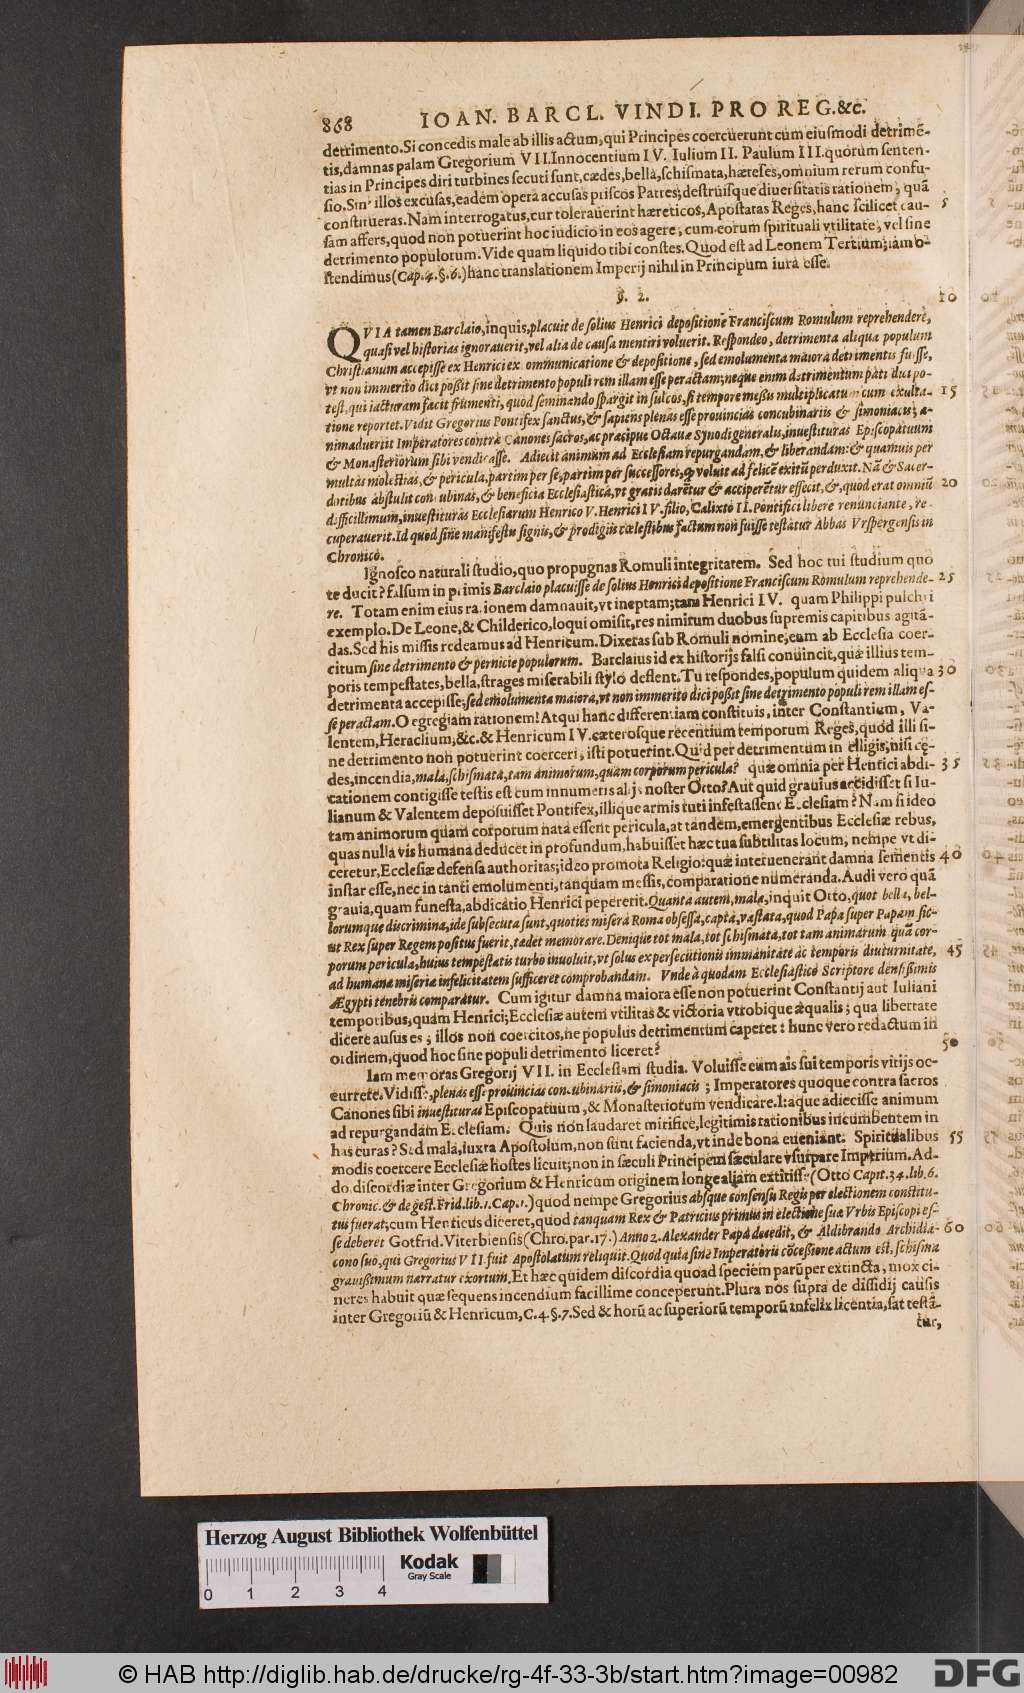 868 IOAN. BARCL. VINDI. PRO REG. &c.
detrimento. Si concedis male ab illis actum, qui Principes coercuerunt cum eiusmodi detrimē-
tis, damnas palam Gregorium VII. Innocentium IV. Iulium II. Paulum III. quorum senten-
tias in Principes diri turbines secuti sunt, cædes, bella, schismata, hæreses, omnium rerum confu-
sio. Sin' illos excusas, eadem opera accusas priscos Patres; destruisque diuersitatis rationem, quā
construeras. Nam interrogatus, cur tolerauerint hæreticos, Apostatas Reges, hanc scilicet cau- 5
sam affers, quod non potuerint hoc iudicio in eos agere, cum eorum spirituali vtilitate, vel sine
detrimento populorum. Vide quam liquido tibi constes. Quod est ad Leonem Tertium; iam o-
stendimus (Cap. 4. §. 6.) hanc translationem Imperij nihil in Principum iura esse.
§. 2. 10
QVIA tamen Barclaio, inquis, placuit de solius Henrici depositione Franciscum Romulum reprehendere,
quasi vel historias ignorauerit, vel alia de causa mentiri voluerit. Respondeo, detrimenta aliqua populum
Christianum accepisse ex Henrici excommunicatione & depositione, sed emolumenta maiora detrimentis fuisse,
vt non immerito dici possit sine detrimento populi rem illam esse peractam; neque enim detrimentum pati dici po-
test, qui iacturam facit frumenti, quod seminando spargit in sulcos, si tempore messis multiplicatum cum exulta- 15
tione reportet. Vidit Gregorius Pontifex sanctus, & sapiens plenas esse prouincias concubinariis & simoniacis; a-
nimaduertit Imperatores contra Canones sacros, ac præcipue Octauæ Synodi generalis, inuestituras Episcopatuum
& Monasteriorum sibi vendicasse. Adiecit animum ad Ecclesiam repurgandam, & liberandam: & quamuis per
multas molestias, & pericula, partim per se, partim per successores, quod voluit ad felicē exitū perduxit. Nā & Sacer-
dotibus abstulit concubinas, & beneficia Ecclesiastica, vt gratis darētur & acciperētur effecit, &, quod erat omniū 20
difficillimum, inuestituras Ecclesiarum Henrico V. Henrici IV. filio, Calixto II. Pontifici libere renunciante, re-
cuperauerit. Id quod sine manifestis signis, & prodigiis cœlestibus factum non fuisse testatur Abbas Vrspergensis in
Chronico.
Ignosco naturali studio, quo propugnas Romuli integritatem. Sed hoc tui studium quo
te ducit? falsum in primis Barclaio placuisse de solius Henrici depositione Franciscum Romulum reprehende- 25
re. Totam enim eius rationem damnauit, vt ineptam; tam Henrici IV. quam Philippi pulchri
exemplo. De Leone, & Childerico, loqui omisit, res nimirum duobus supremis capitibus agitā-
das. Sed his missis redeamus ad Henricum. Dixeras sub Romuli nomine, eum ab Ecclesia coer-
citum sine detrimento & pernicie populorum. Barclaius id ex historijs falsi conuincit, quæ illius tem-
poris tempestates, bella, strages miserabili stylo deflent. Tu respondes, populum quidem aliqua 30
detrimenta accepisse, sed emolumenta maiora, vt non immerito dici possit sine detrimento populi rem illam es-
se peractam. O egregiam rationem! Atqui hanc differentiam constituis, inter Constantium, Va-
lentem, Heraclium, &c. & Henricum IV. cæterosque recentium temporum Reges, quod illi si-
ne detrimento non potuerint coerceri, isti potuerint. Quid per detrimentum in elligis, nisi cę-
des, incendia, mala, schismata, tam animorum, quam corporum pericula? quæ omnia per Henrici abdi- 35
cationem contigisse testis est cum innumeris alijs noster Otto? Aut quid grauius accidisset si Iu-
lianum & Valentem deposuisset Pontifex, illique armis tuti infestassent Ecclesiam? Nam si ideo
tam animorum quam corporum nata essent pericula, at tandem, emergentibus Ecclesiæ rebus,
quas nulla vis humana deducet in profundum, habuisset hæc tua subtilitas locum, nempe vt di-
ceretur, Ecclesiæ defensa authoritas; ideo promota Religio: quæ interuenerant damna sementis 40
instar esse, nec in tanti emolumenti, tanquam messis, comparatione numeranda. Audi vero quā
grauia, quam funesta, abdicatio Henrici peperetit. Quanta autem, mala, inquit Otto, quot bella, bel-
lorumque discrimina, ide subsecuta sunt, quoties misera Roma obsessa, capta, vastata, quod Papa super Papam sic-
ut Rex super Regem positus fuerit, tædet memorare. Denique tot mala, tot schismata, tot tam animarum quā cor-
porum pericula, huius tempestatis turbo inuoluit, vt solus ex persecutionis immanitate ac temporis diuturnitate, 45
ad humanæ miseriæ infelicitatem sufficeret comprobandam. Vnde à quodam Ecclesiastico Scriptore densissimis
Ægypti tenebris comparatur. Cum igitur damna maiora esse non potuerint Constantij aut Iuliani
temporibus, quam Henrici; Ecclesiæ autem vtilitas & victoria vtrobique æqualis; qua libertate
dicere ausus es; illos non coercitos, ne populus detrimentum caperet: hunc vero redactum in
ordinem, quod hoc sine populi detrimento liceret? 50
Iam memoras Gregorij VII. in Ecclesiam studia. Voluisse eum ais sui temporis vitijs oc-
currere. Vidisse, plenas esse prouincias concubinariis, & simoniacis; Imperatores quoque contra sacros
Canones sibi inuestituras Episcopatuum, & Monasteriorum vendicare. Itaque adiecisse animum
ad repurgandam Ecclesiam. Quis non laudaret mirifice, legitimis rationibus incumbentem in
has curas? Sed mala, iuxta Apostolum, non sunt facienda, vt inde bona eueniant: Spiritualibus 55
modis coercere Ecclesiæ hostes licuit; non in sæculi Principem sæculare vsurpare Imperium. Ad-
do, discordiæ inter Gregorium & Henricum originem longe aliam extitisse (Otto Capit. 34. lib. 6.
Chronic. & de gest. Frid. lib. 1. Cap. 1.) quod nempe Gregorius absque consensu Regis per electionem constitu-
tus fuerat; cum Henricus diceret, quod tanquam Rex & Patricius primus in electione suæ Vrbis Episcopi es-
se deberet Gotfrid. Viterbiensis (Chro. par. 17.) Anno 2. Alexander Papa decedit, & Aldibrando Archidia- 60
cono suo, qui Gregorius VII. fuit Apostolatum reliquit. Quod quia sine Imperatoris cōcessione actum est, schisma
grauissimum narratur exortum. Et hæc quidem discordia quoad speciem parūper extincta, mox ci-
neres habuit quæ sequens incendium facillime conceperunt. Plura nos supra de dissidij causis
inter Gregoriū & Henricum, C. 4. §. 7. Sed & horū ac superiorū temporū infelix licentia, sat testā-
tur,
Herzog August Bibliothek Wolfenbüttel
Kodak
Gray Scale
0 1 2 3 4
© HAB http://diglib.hab.de/drucke/rg-4f-33-3b/start.htm?image=00982
DFG